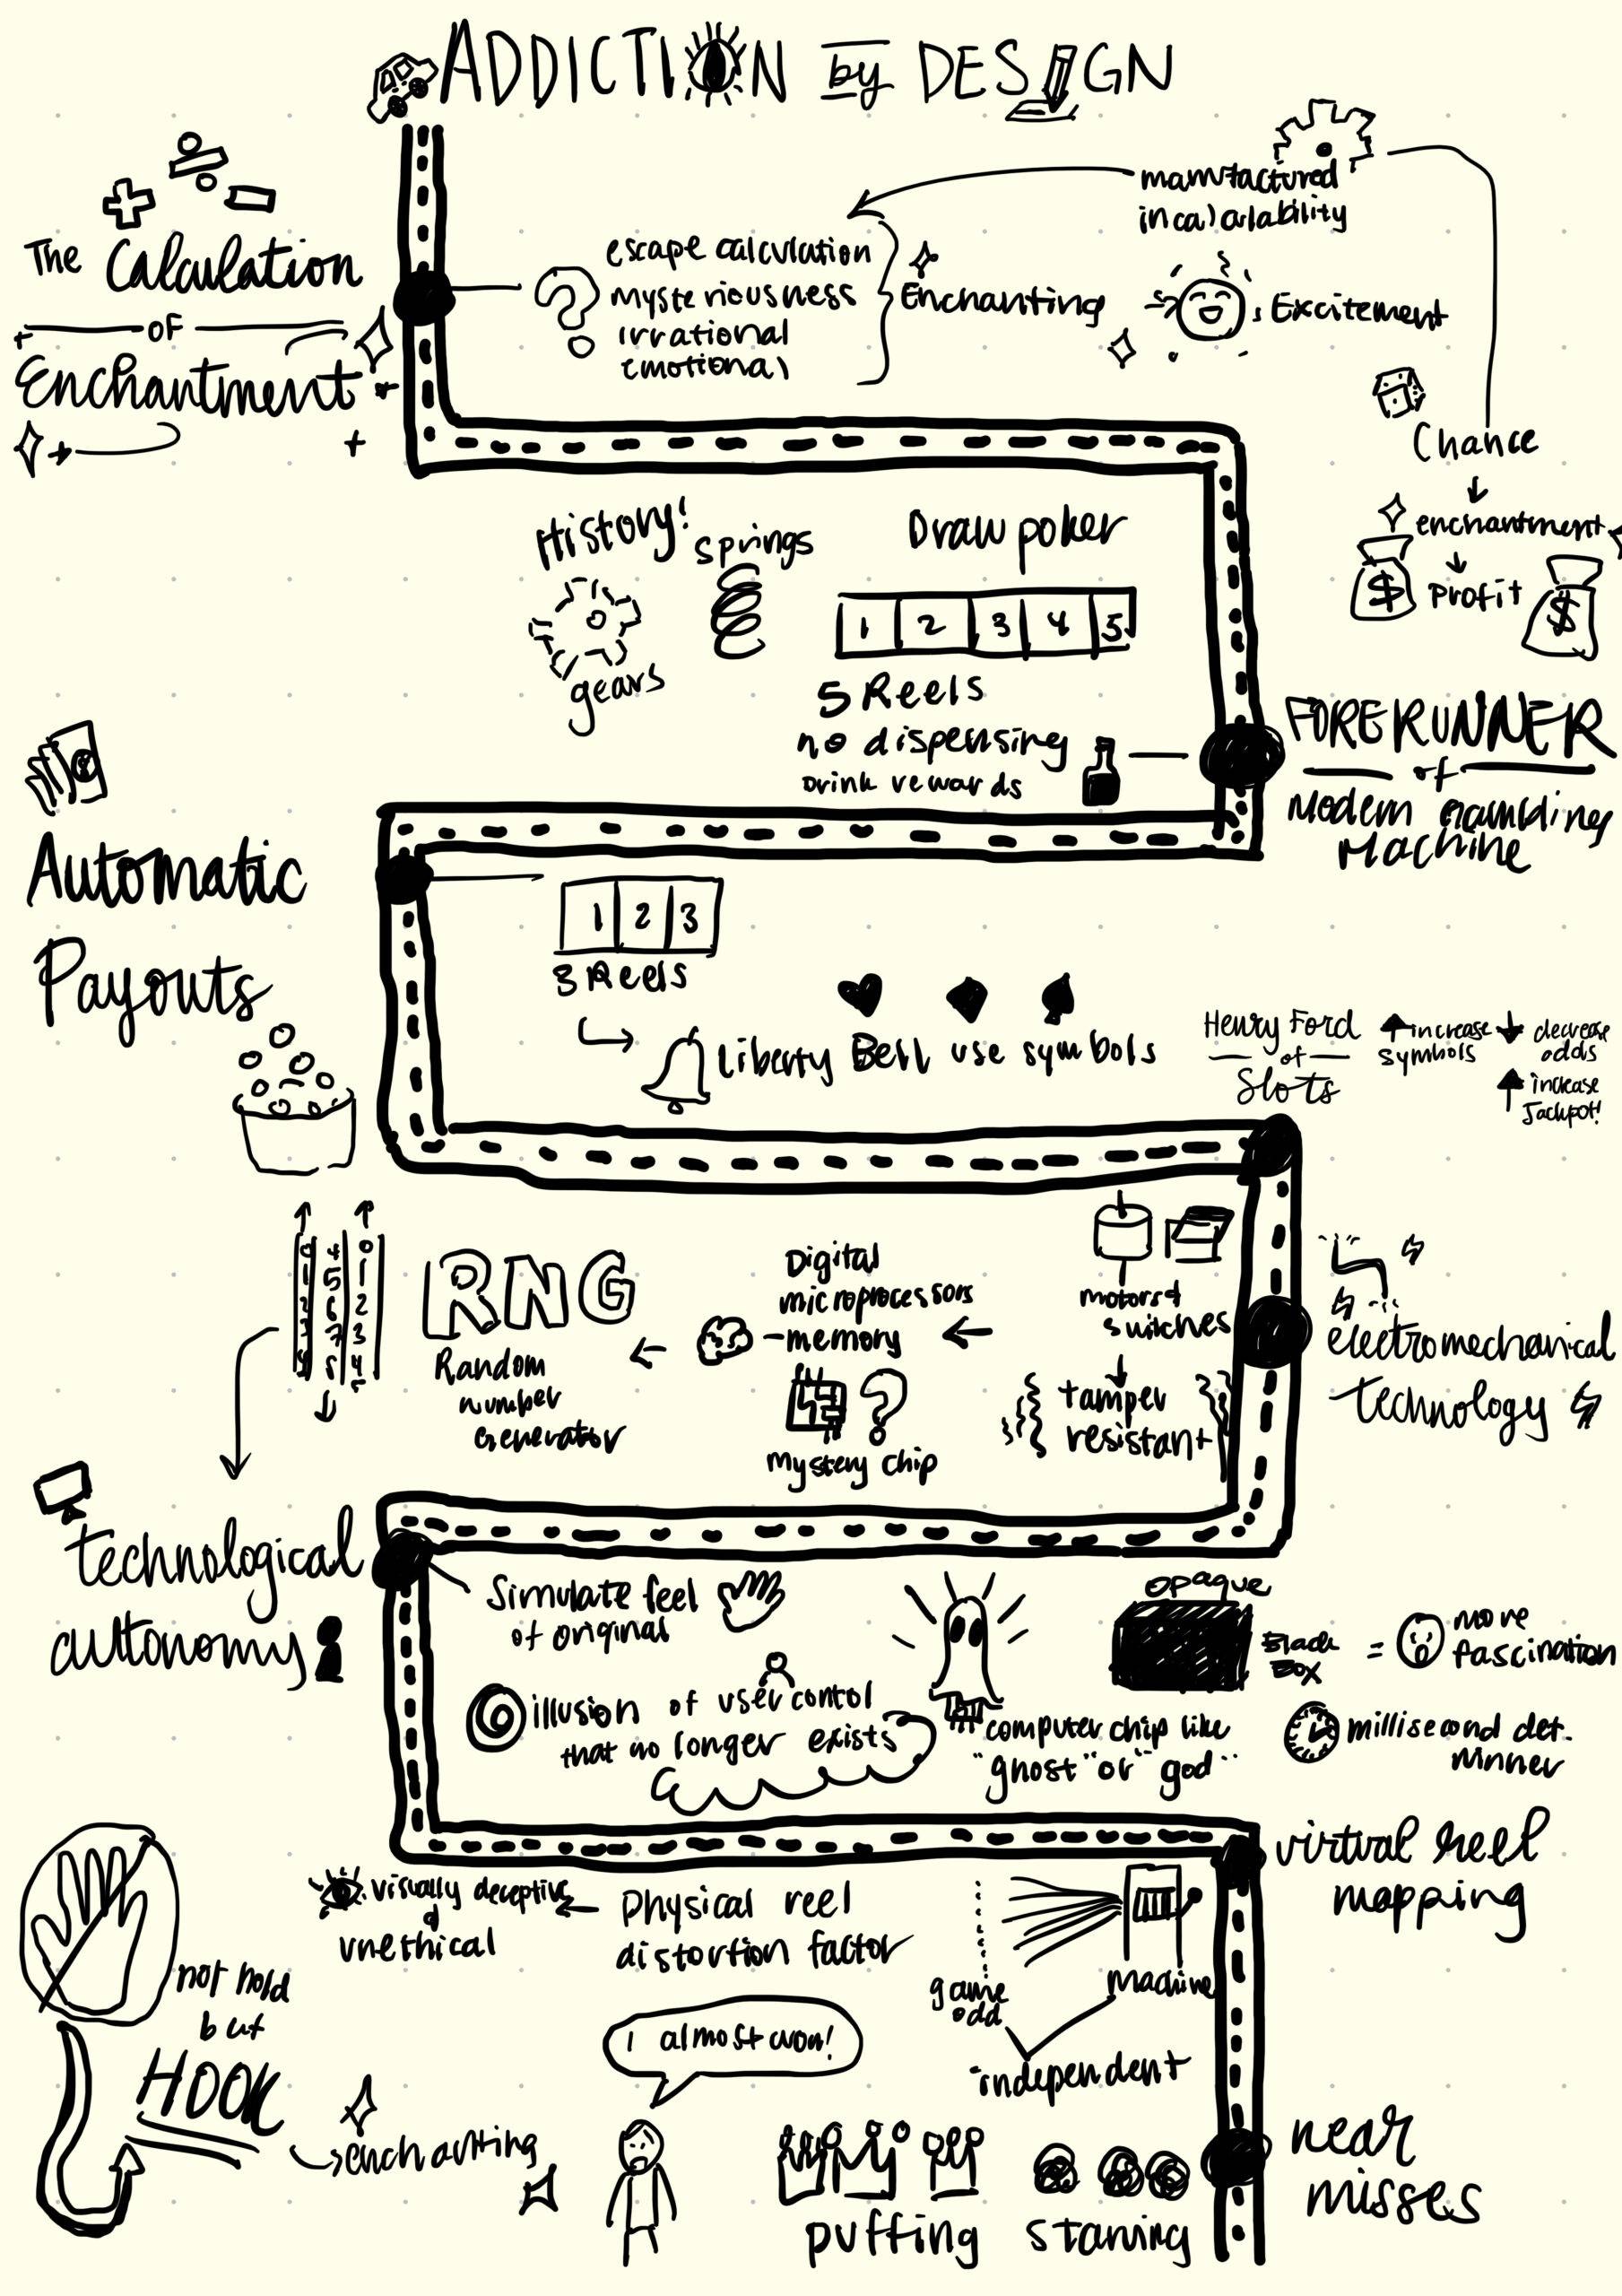 ADDICTION by DESIGN
The Calculation
OF
Enchantment
escape calculation
mysteriousness
irrational
emotional
Enchanting
manufactured
Excitement
Chance
enchantment
Profit
$
$
History!
springs
gears
Draw poker
1 2 3 4 5
5 Reels
no dispensing
Drink rewards
FORERUNNER
of
Modern Gambling
Machine
Automatic
Payouts
1 2 3
3 Reels
Liberty Bell use symbols
Henry Ford
of
Slots
increase
symbols
decrease
odds
increase
Jackpot!
electromechanical
technology
motors &
switches
tamper
resistant
Digital
microprocessors
-memory
mystery chip
RNG
Random
number
Generator
technological
autonomy
Simulate feel
of original
illusion of user contol
that no longer exists
computer chip like
"ghost" or "god"
opaque
Black
Box
=
more
fascination
millisecond det.
winner
virtual reel
mapping
game
odd
Machine
independent
Physical reel
distortion factor
visually deceptive
&
unethical
near
misses
starving
puffing
I almost won!
not hold
but
HOOK
enchanting